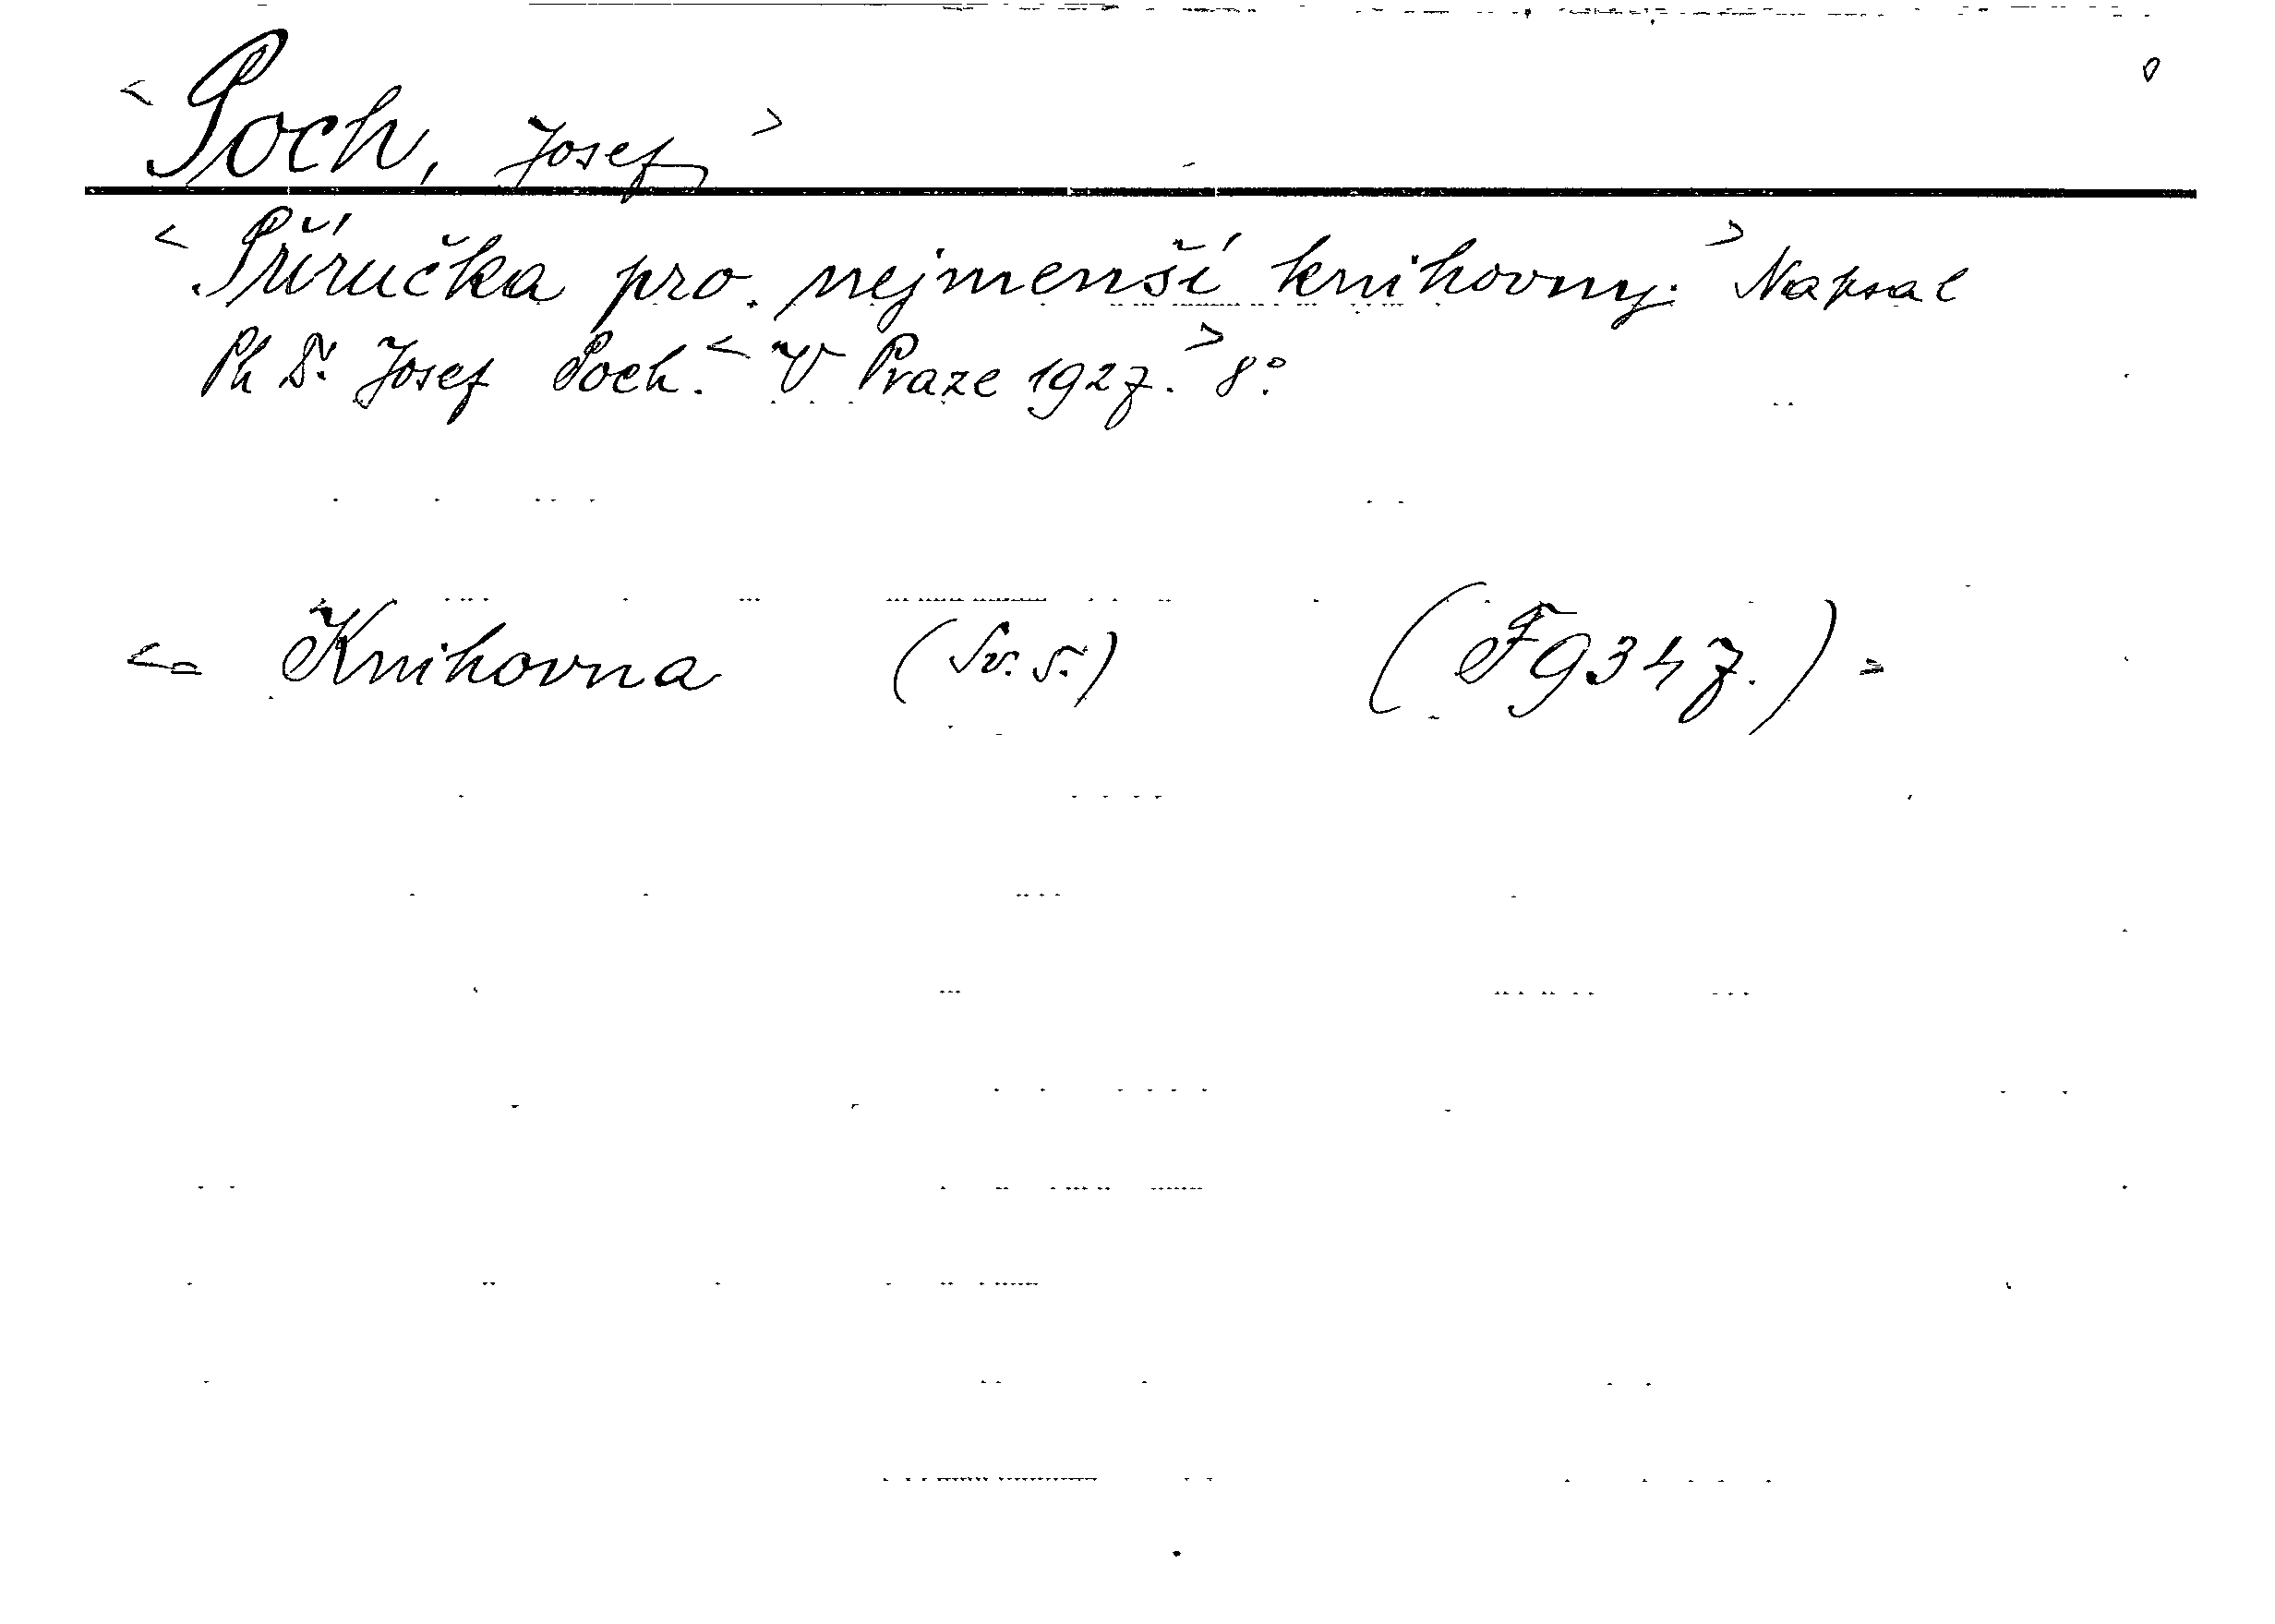 < Poch, Josef >
< Příručka pro nejmenší knihovny. > Napsal
Ph Dr. Josef Poch. < V Praze 1927. > 8°.
Knihovna (Sv. 5.) (F 9347.)